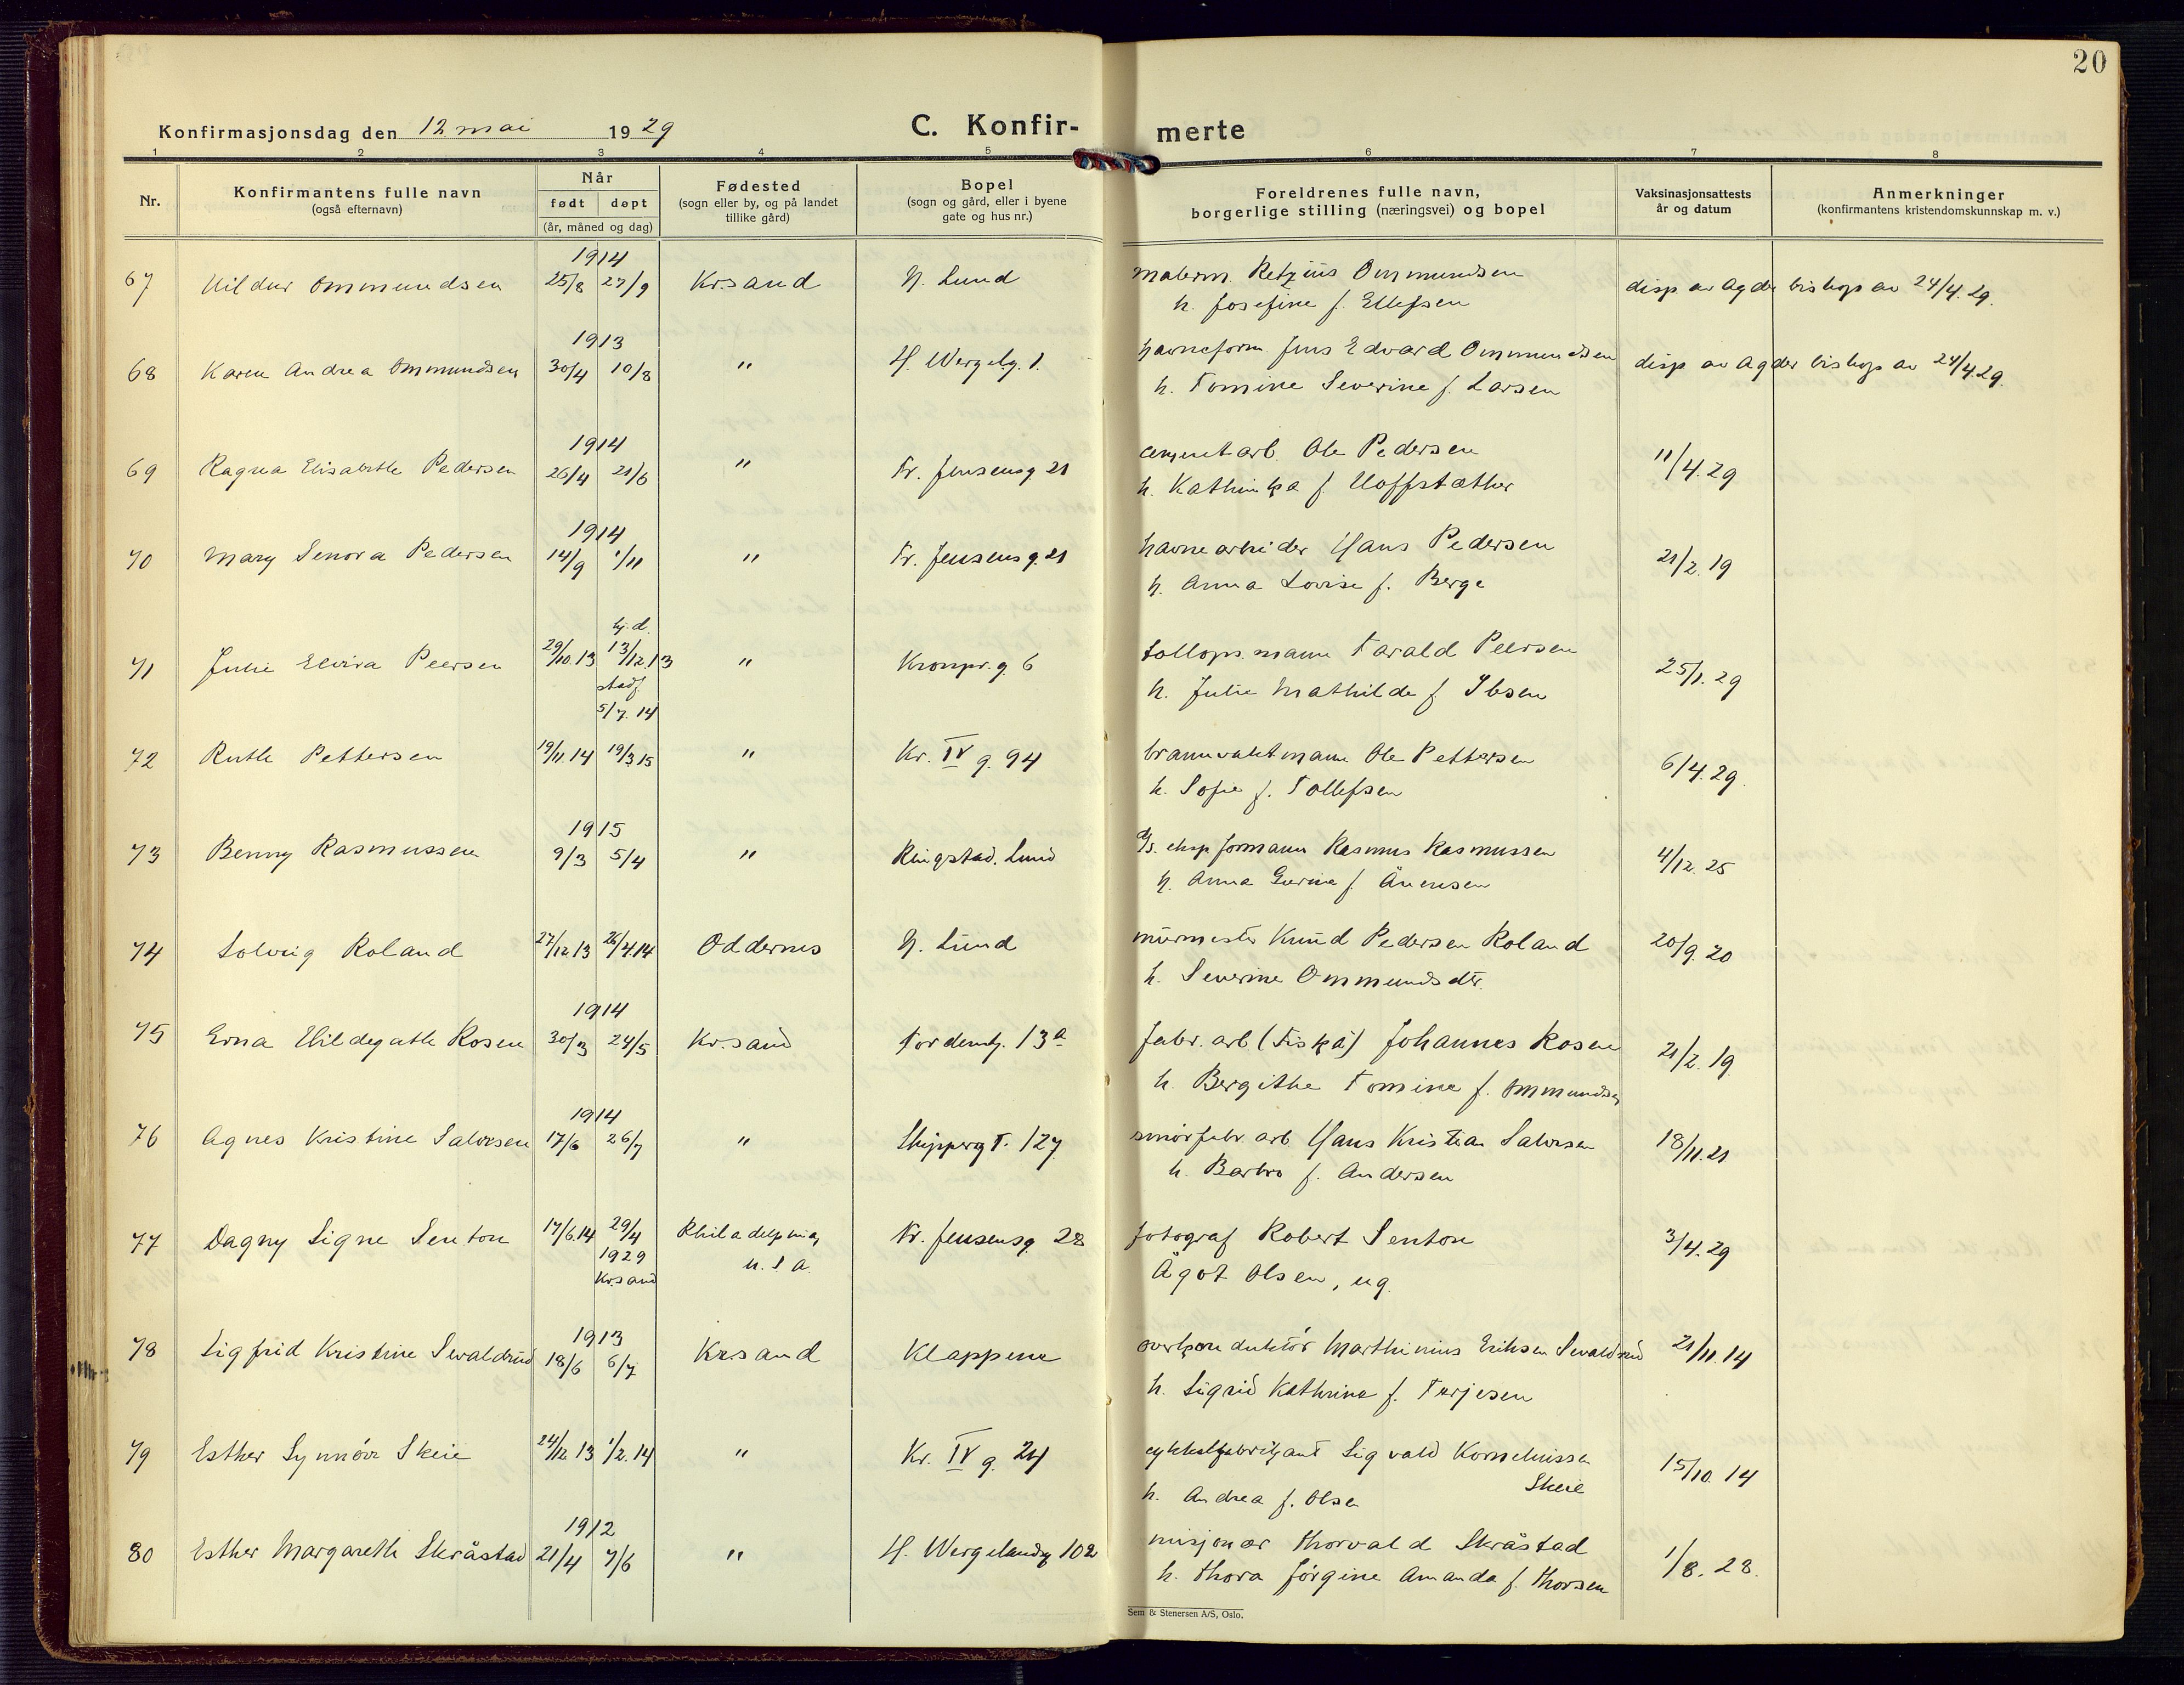 20
Konfirmasjonsdag den 12 mai 1929
C. Konfir- merte
1 2 3 4 5 6 7 8
Nr.
Konfirmantens fulle navn
(også efternavn)
Når
født døpt
(år, måned og dag)
Fødested
(sogn eller by, og på landet
tillike gård)
Bopel
(sogn og gård, eller i byene
gate og hus nr.)
Foreldrenes fulle navn,
borgerlige stilling (næringsvei) og bopel
Vaksinasjonsattests
år og datum
Anmerkninger
(konfirmantens kristendomskunnskap m. v.)
1914
67 Hildur Ommundsen 25/8 27/9 Kr.sand N. Lund malerm. Retzius Ommundsen disp av Agder biskop av 24/4.29.
h. Josefine f. Ellefsen
1913
68 Karen Andrea Ommundsen 30/4 10/8 " H. Wergelg. 1. havneform. Jens Edvard Ommundsen disp av Agder biskop av 24/4.29.
h. Tomine Severine f. Larsen
1914
69 Ragna Elisabeth Pedersen 26/4 21/6 " Fr. Jensensg 21 cementarb. Ole Pedersen 11/4.29
h. Kathinka f. Hoffstæther
1914
70 Mary Senora Pedersen 14/9 1/11 " Fr. Jensensg. 21 havnearbeider Hans Pedersen 21/2.19
h. Anna Lovise f. Berge
hj.d.
71 Julie Elvira Peersen 29/10.13 13/12.13 " Kronpr.g. 6 tollops.mann Tarald Peersen 25/1.29
stadf. h. Julie Mathilde f. Ibsen
5/7.14
72 Ruth Pettersen 19/11.14 19/3 15 " Kr. IV g. 94 brannvaktmann Ole Pettersen 6/4.29.
h. Sofie f. Tollefsen
1915
73 Benny Rasmussen 9/3 5/4 " Ringstad. Lund formann Rasmus Rasmussen 4/12.25
h. Anna f. Ånensen
74 Solveig Roland 27/12.13 26/4.14 Oddernes N. Lund mūrmester Knud Pedersen Roland 20/9.20
h. Severine Ommundsdtr.
1914
75 Erna Hildegarth Rosen 30/3 24/5 Kr.sand Tordensg. 13a fabr. arb (Fiskå) Johannes Rosen 21/2.19
h. Bergithe Tomine f. Ommundsen
1914
76 Agnes Kristine Salvesen 17/6 26/7 " Skippergt. 127. smörfabr. arb. Hans Kristian Salvesen 18/11.21
h. Barbro f. Andersen
77 Dagny Signe Senton 17/6.14 29/4 Philadelphia, Fr. Jensensg 28 fotograf Robert Senton 3/4.29
1929 U.S.A. Ågot Olsen, ug.
Kr.sand
1913
78 Sigfrid Kristine Sevaldrud 18/6 6/7 Kr.sand Klappene overkonduktör Marthinius Eriksen Sevaldrud 21/11.14
h. Sigrid Kathrine f. Terjesen
79 Esther Synnöve Skeie 24/12 13 1/2.14 " Kr. IV g. 24 cykkelfabrikant Sigvald Korneliussen 15/10.14
Skeie
h. Andrea f. Olsen
1912
80 Esther Margareth Skråstad 21/4 7/6 " H. Wergelandg 102 misjonær Thorvald Skråstad 1/8.28.
h. Thora Jörgine Amanda f. Thorsen
Sem & Stenersen A/S, Oslo.